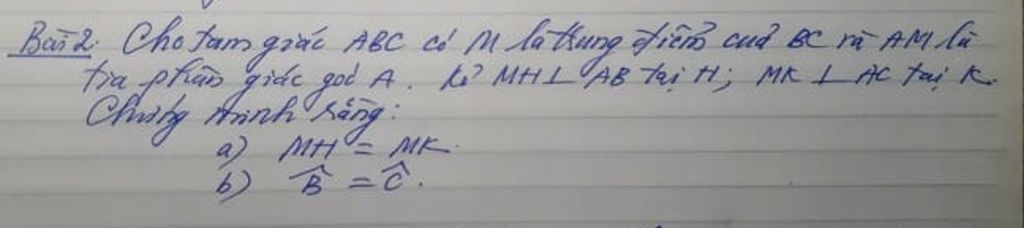 Bài 2. Cho tam giác ABC có M là trung điểm của BC và AM là
tia phân giác góc A. kẻ MH ⊥ AB tại H; MK ⊥ AC tại K.
Chứng minh rằng:
a) MH = MK.
b) B̂ = Ĉ.